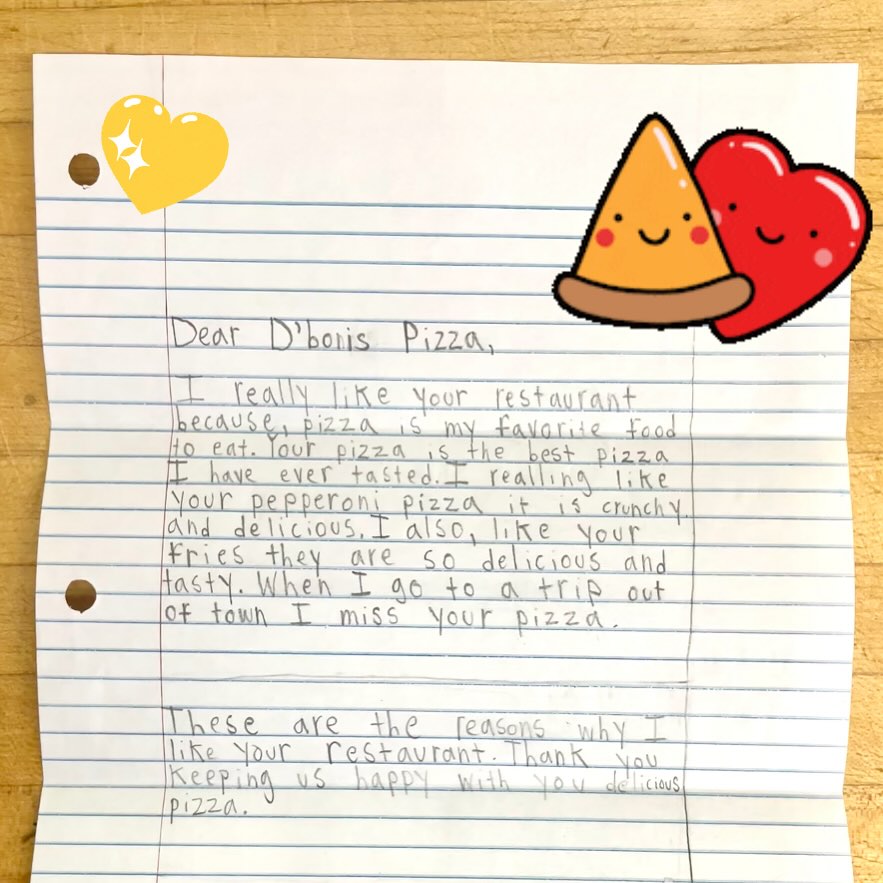 Dear D'bonis Pizza,
I really like your restaurant
because, pizza is my favorite food
to eat. Your pizza is the best pizza
I have ever tasted. I realling like
your pepperoni pizza it is crunchy
and delicious. I also, like your
fries they are so delicious and
tasty. When I go to a trip out
of town I miss your pizza.
These are the reasons why I
like your restaurant. Thank you
keeping us happy with you delicious
pizza.